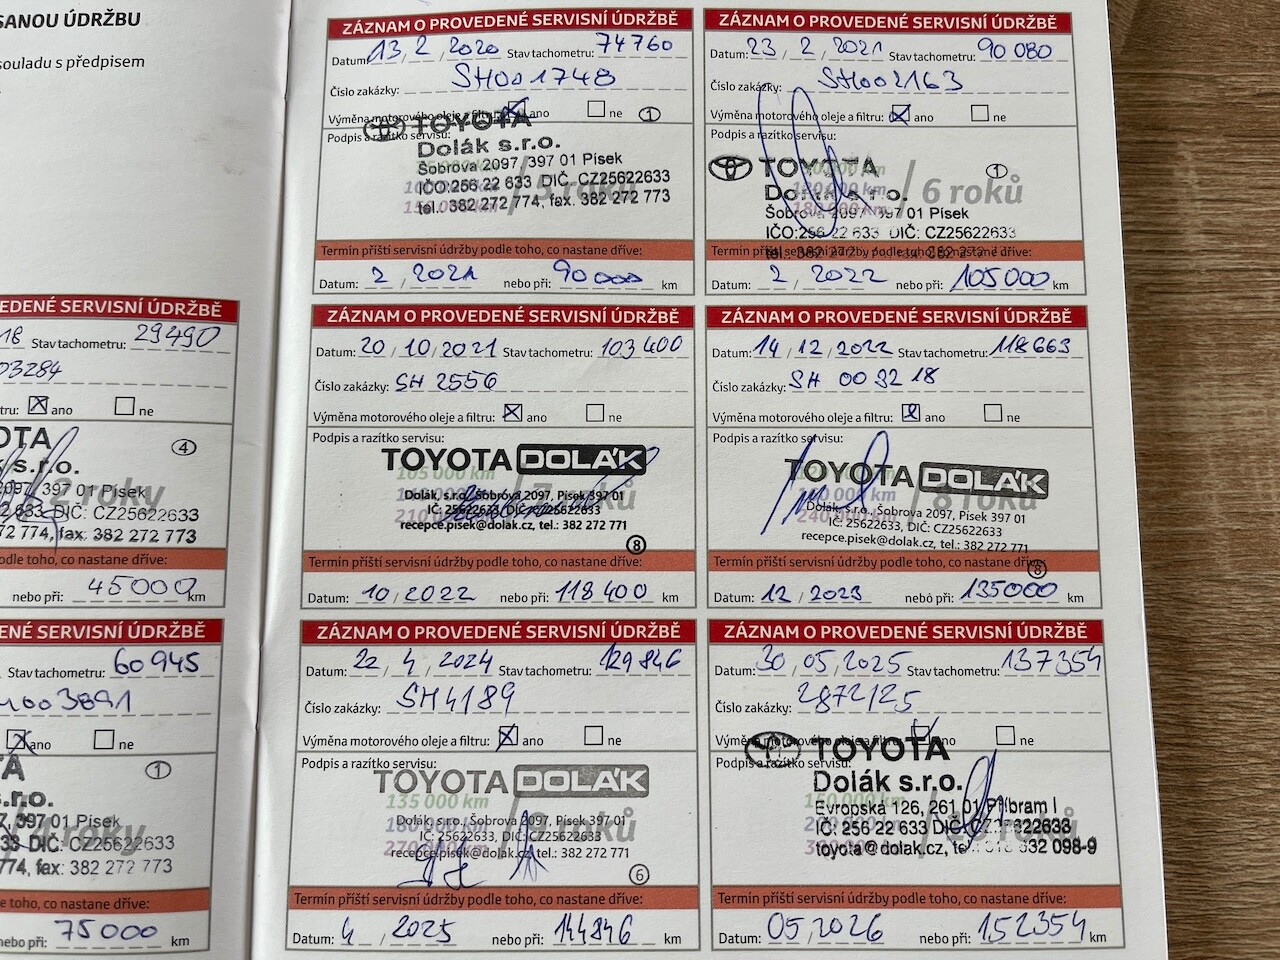 SANOU ÚDRŽBU
souladu s předpisem
EDENÉ SERVISNÍ ÚDRŽBĚ
18 Stav tachometru: 29490
03284
tru: ano ne
OTA
4
s.r.o.
2097, 397 01 Písek
2 roky
633 DIČ: CZ25622633
72 774, fax: 382 272 773
odle toho, co nastane dříve:
nebo při: 45000 km
ENÉ SERVISNÍ ÚDRŽBĚ
Stav tachometru: 60945
003891
ano ne
A
1
s.r.o.
7, 397 01 Písek
4 roky
33 DIČ: CZ25622633
774, fax: 382 272 773
e toho, co nastane dříve:
nebo při: 75000 km
ZÁZNAM O PROVEDENÉ SERVISNÍ ÚDRŽBĚ
Datum: 13 / 2 / 2020 Stav tachometru: 74760
Číslo zakázky: SH001748
Výměna motorového oleje a filtru: ano ne 1
Podpis a razítko servisu:
TOYOTA
Dolák s.r.o.
Šobrova 2097, 397 01 Písek
IČO:256 22 633 DIČ: CZ25622633
5 roků
tel. 382 272 774, fax. 382 272 773
Termín příští servisní údržby podle toho, co nastane dříve:
Datum: 2 / 2021 nebo při: 90000 km
ZÁZNAM O PROVEDENÉ SERVISNÍ ÚDRŽBĚ
Datum: 23 / 2 / 2021 Stav tachometru: 90 080
Číslo zakázky: SH002163
Výměna motorového oleje a filtru: ano ne
Podpis a razítko servisu:
TOYOTA 1
6 roků
Šobrova 2097, 397 01 Písek
IČO:256 22 633 DIČ: CZ25622633
Termín příští servisní údržby podle toho, co nastane dříve:
Datum: 2 / 2022 nebo při: 105000 km
ZÁZNAM O PROVEDENÉ SERVISNÍ ÚDRŽBĚ
Datum: 20 / 10 / 2021 Stav tachometru: 103 400
Číslo zakázky: SH 2556
Výměna motorového oleje a filtru: ano ne
Podpis a razítko servisu:
TOYOTA DOLÁK
105 000 km
7 roků
Dolák, s.r.o., Šobrova 2097, Písek 397 01
IČ: 25622633, DIČ: CZ25622633
recepce.pisek@dolak.cz, tel.: 382 272 771
8
Termín příští servisní údržby podle toho, co nastane dříve:
Datum: 10 / 2022 nebo při: 118 400 km
ZÁZNAM O PROVEDENÉ SERVISNÍ ÚDRŽBĚ
Datum: 14 / 12 / 2022 Stav tachometru: 118663
Číslo zakázky: SH 003218
Výměna motorového oleje a filtru: ano ne
Podpis a razítko servisu:
TOYOTA DOLÁK
8 roků
Dolák, s.r.o., Šobrova 2097, Písek 397 01
IČ: 25622633, DIČ: CZ25622633
recepce.pisek@dolak.cz, tel.: 382 272 771
Termín příští servisní údržby podle toho, co nastane dříve:
8
Datum: 12 / 2023 nebo při: 135000 km
ZÁZNAM O PROVEDENÉ SERVISNÍ ÚDRŽBĚ
Datum: 22 / 4 / 2024 Stav tachometru: 129846
Číslo zakázky: SH4189
Výměna motorového oleje a filtru: ano ne
Podpis a razítko servisu:
TOYOTA DOLÁK
135 000 km
180 000 km
9 roků
Dolák, s.r.o., Šobrova 2097, Písek 397 01
IČ: 25622633, DIČ: CZ25622633
recepce.pisek@dolak.cz, tel.: 382 272 771
6
Termín příští servisní údržby podle toho, co nastane dříve:
Datum: 4 / 2025 nebo při: 144846 km
ZÁZNAM O PROVEDENÉ SERVISNÍ ÚDRŽBĚ
Datum: 30 / 05 / 2025 Stav tachometru: 137354
Číslo zakázky: 2872/25
Výměna motorového oleje a filtru: ano ne
Podpis a razítko servisu:
TOYOTA
Dolák s.r.o.
Evropská 126, 261 01 Příbram I
IČ: 256 22 633 DIČ: CZ25622633
toyota@dolak.cz, tel.: 318 632 098-9
Termín příští servisní údržby podle toho, co nastane dříve:
Datum: 05 / 2026 nebo při: 152354 km